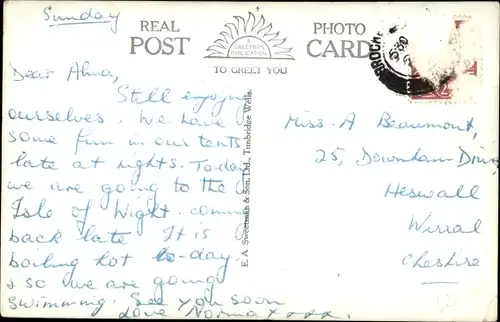 Sunday
REAL PHOTO
POST CARD
A
SWEETMAN
PUBLICATION
TO GREET YOU
BROCK
Dear Alma,
Still enjoying
ourselves. We have
some fun in our tents
late at nights. To-day
we are going to the
Isle of Wight. coming
back late. It is
boiling hot to-day.
& so we are going
swimming. See you soon
love Norma xxxx.
E. A. Sweetman & Son, Ltd., Tunbridge Wells.
Miss. A Beaumont,
25, Downham Drive
Heswall
Wirral
Cheshire